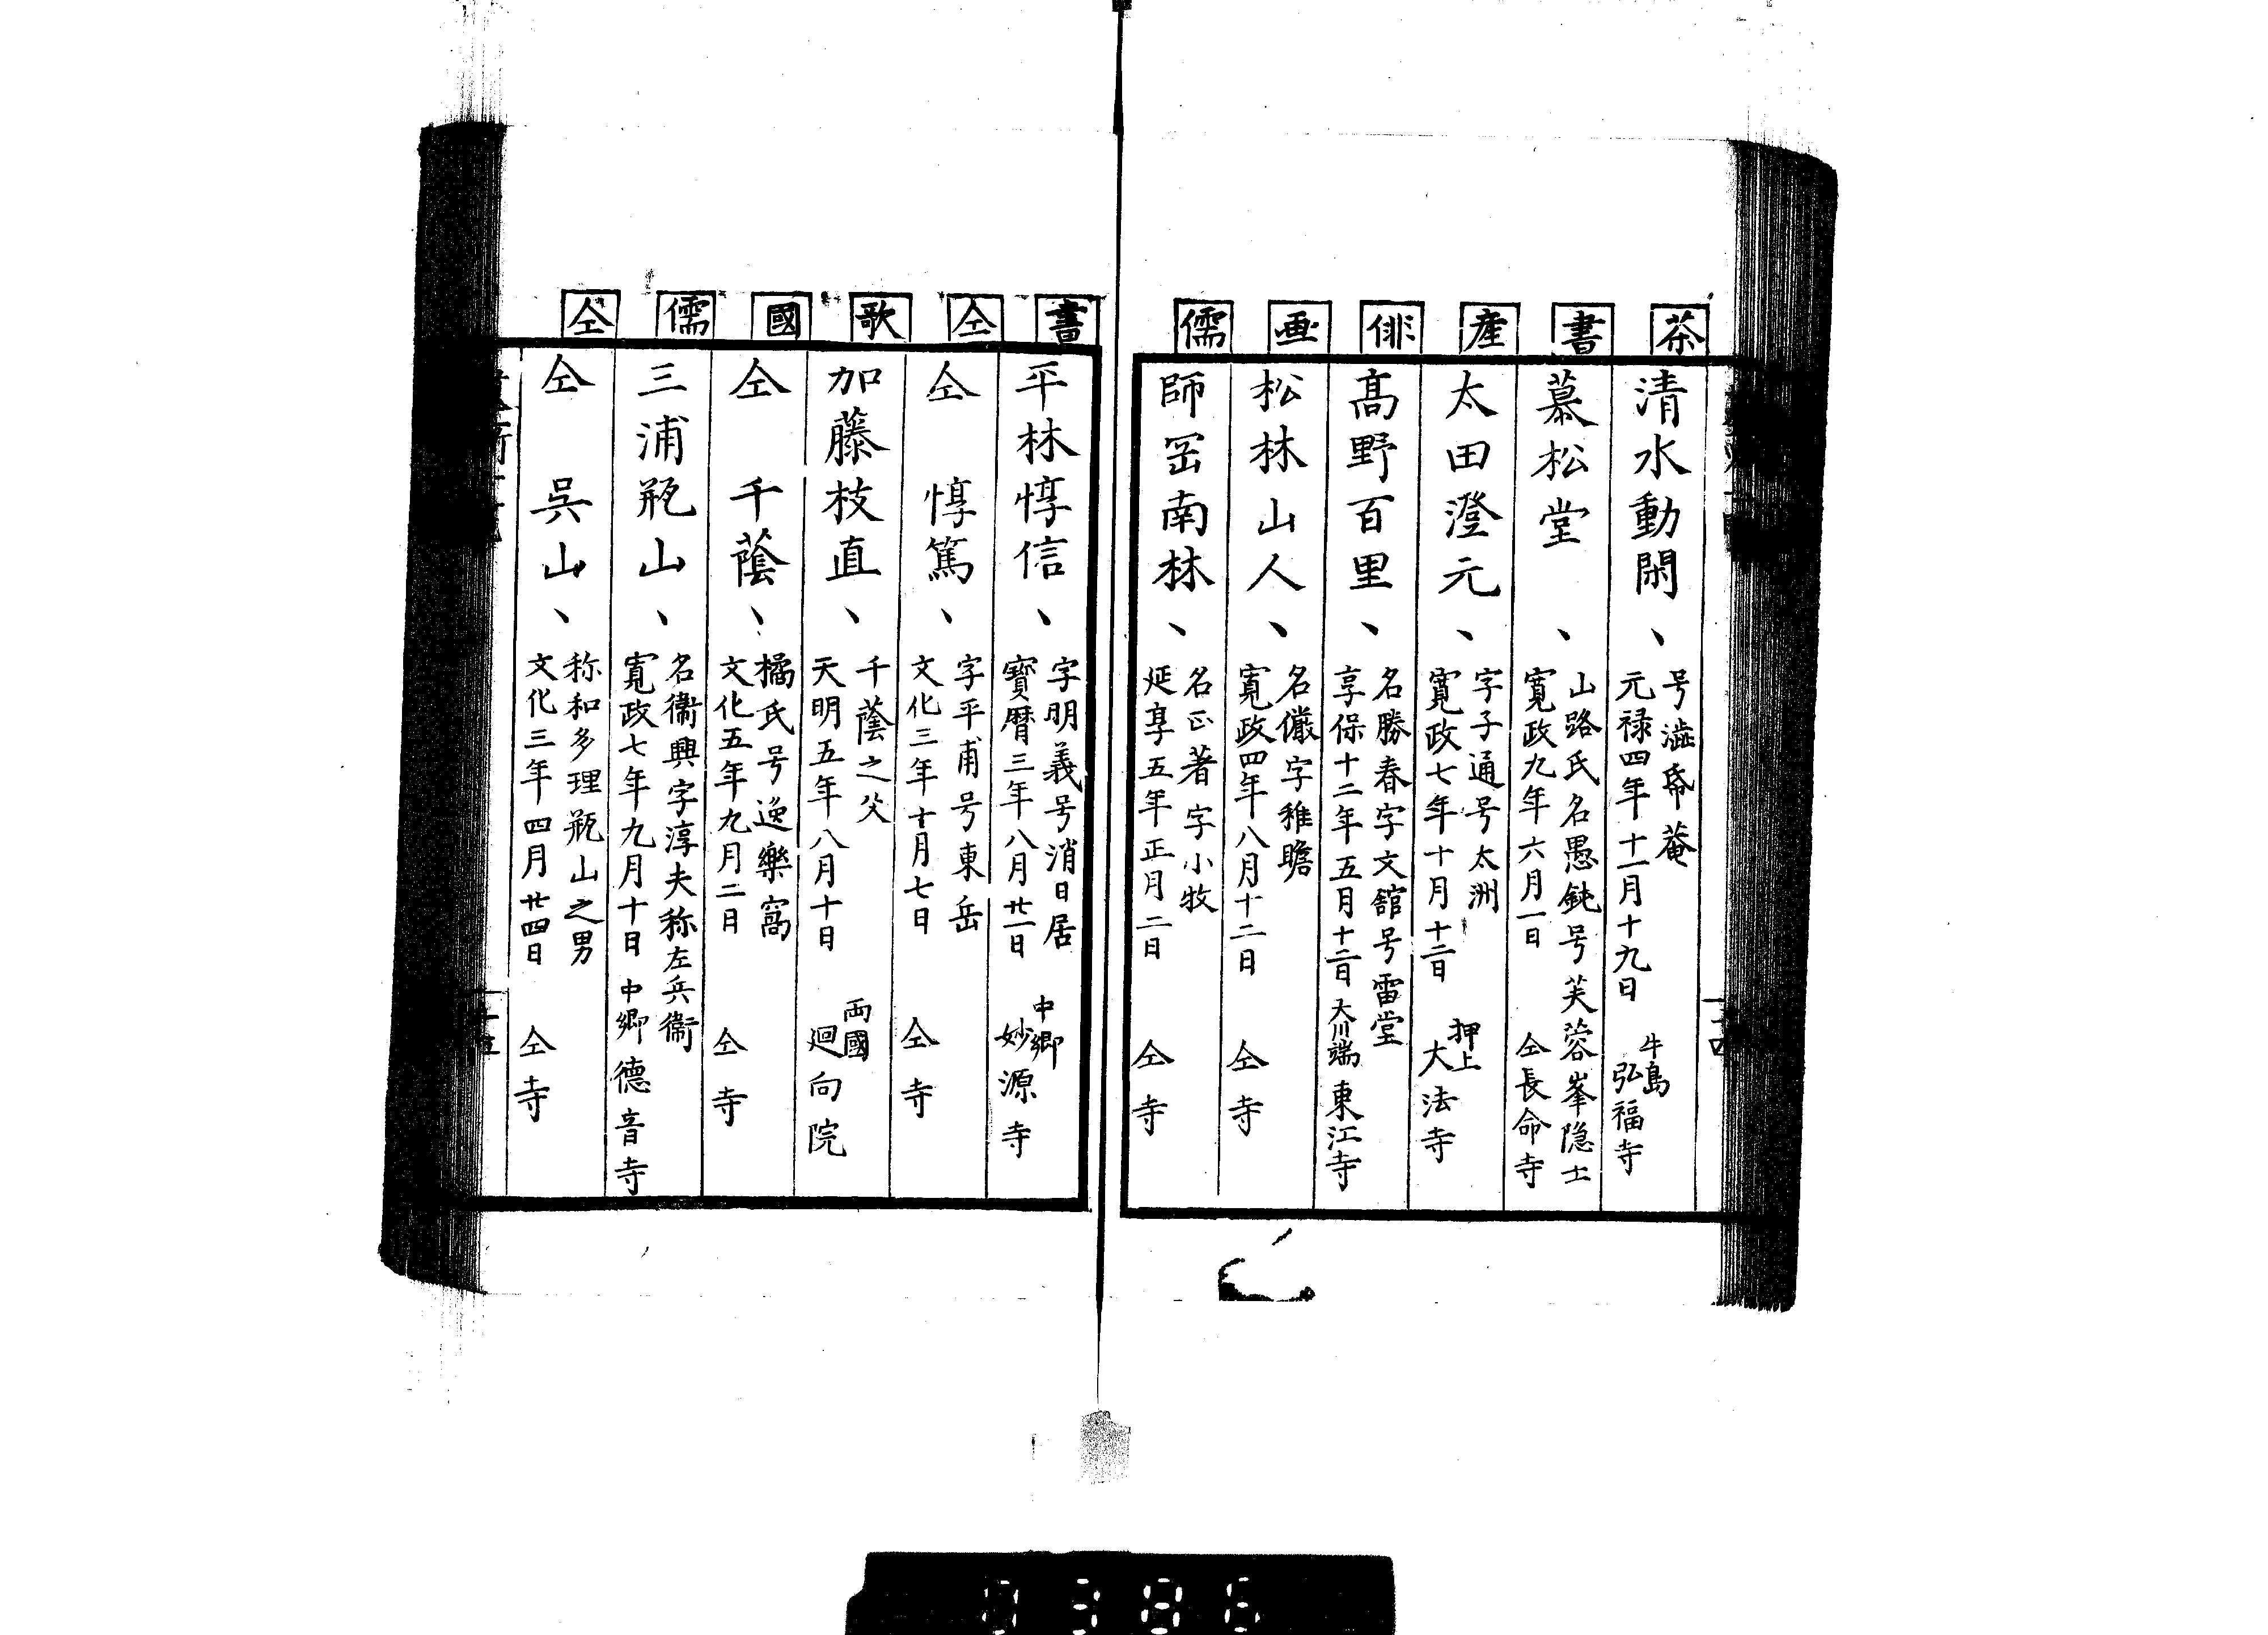 茶
清水動閑、
号澁帋菴
元禄四年十一月十九日
牛島
弘福寺
書
慕松堂、
山路氏名愚鈍号芙蓉峯隠士
寛政九年六月一日
仝長命寺
産
太田澄元、
字子通号太洲
寛政七年十月十二日
押上
大法寺
俳
髙野百里、
名勝春字文舘号雷堂
享保十二年五月十二日
大川端
東江寺
画
松林山人、
名儼字稚瞻
寛政四年八月十二日
仝寺
儒
師岡南林、
名正著字小牧
延享五年正月二日
仝寺
書
平林惇信、
字明義号消日居
寳暦三年八月廿一日
中郷
妙源寺
仝
仝惇篤、
字平甫号東岳
文化三年十月七日
仝寺
歌
加藤枝直、
千蔭之父
天明五年八月十日
両國
廻向院
國
仝千蔭、
橘氏号逸樂窩
文化五年九月二日
仝寺
儒
三浦瓶山、
名衞興字淳夫称左兵衞
寛政七年九月十日
中郷
德音寺
仝
仝呉山、
称和多理瓶山之男
文化三年四月廿四日
仝寺